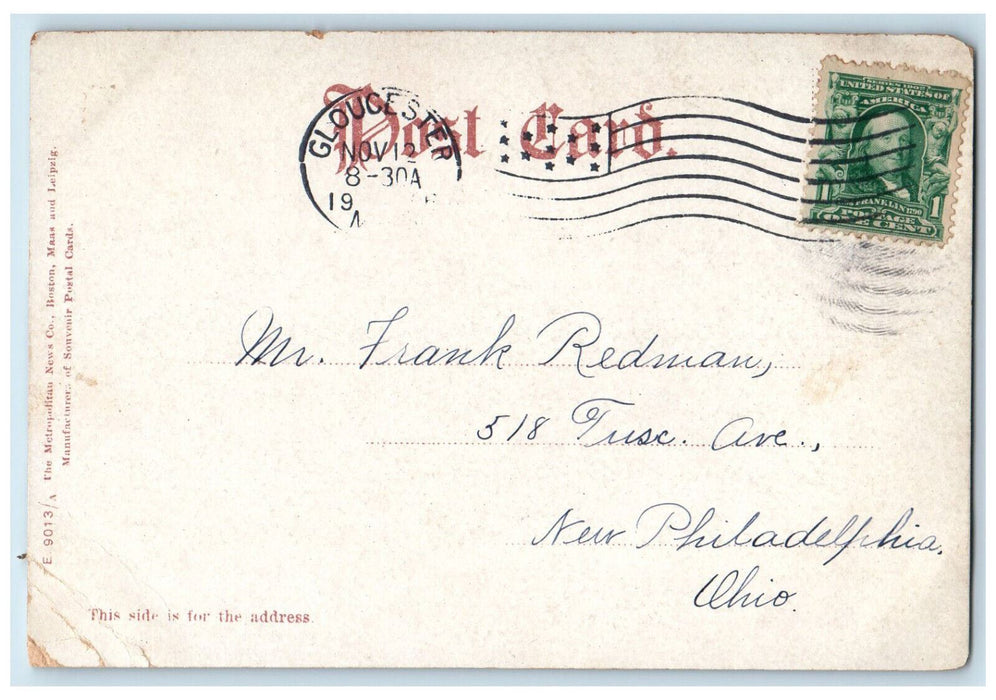 Post Card.
GLOUCESTER
NOV 12
8-30A
19
SERIES 1902
UNITED STATES OF
AMERICA
FRANKLIN 1790
POSTAGE
1 ONE CENT 1
E 9013/A The Metropolitan News Co., Boston, Mass and Leipzig.
Manufacturers of Souvenir Postal Cards.
Mr. Frank Redman,
518 Tusc. Ave.,
New Philadelphia,
Ohio.
This side is for the address.